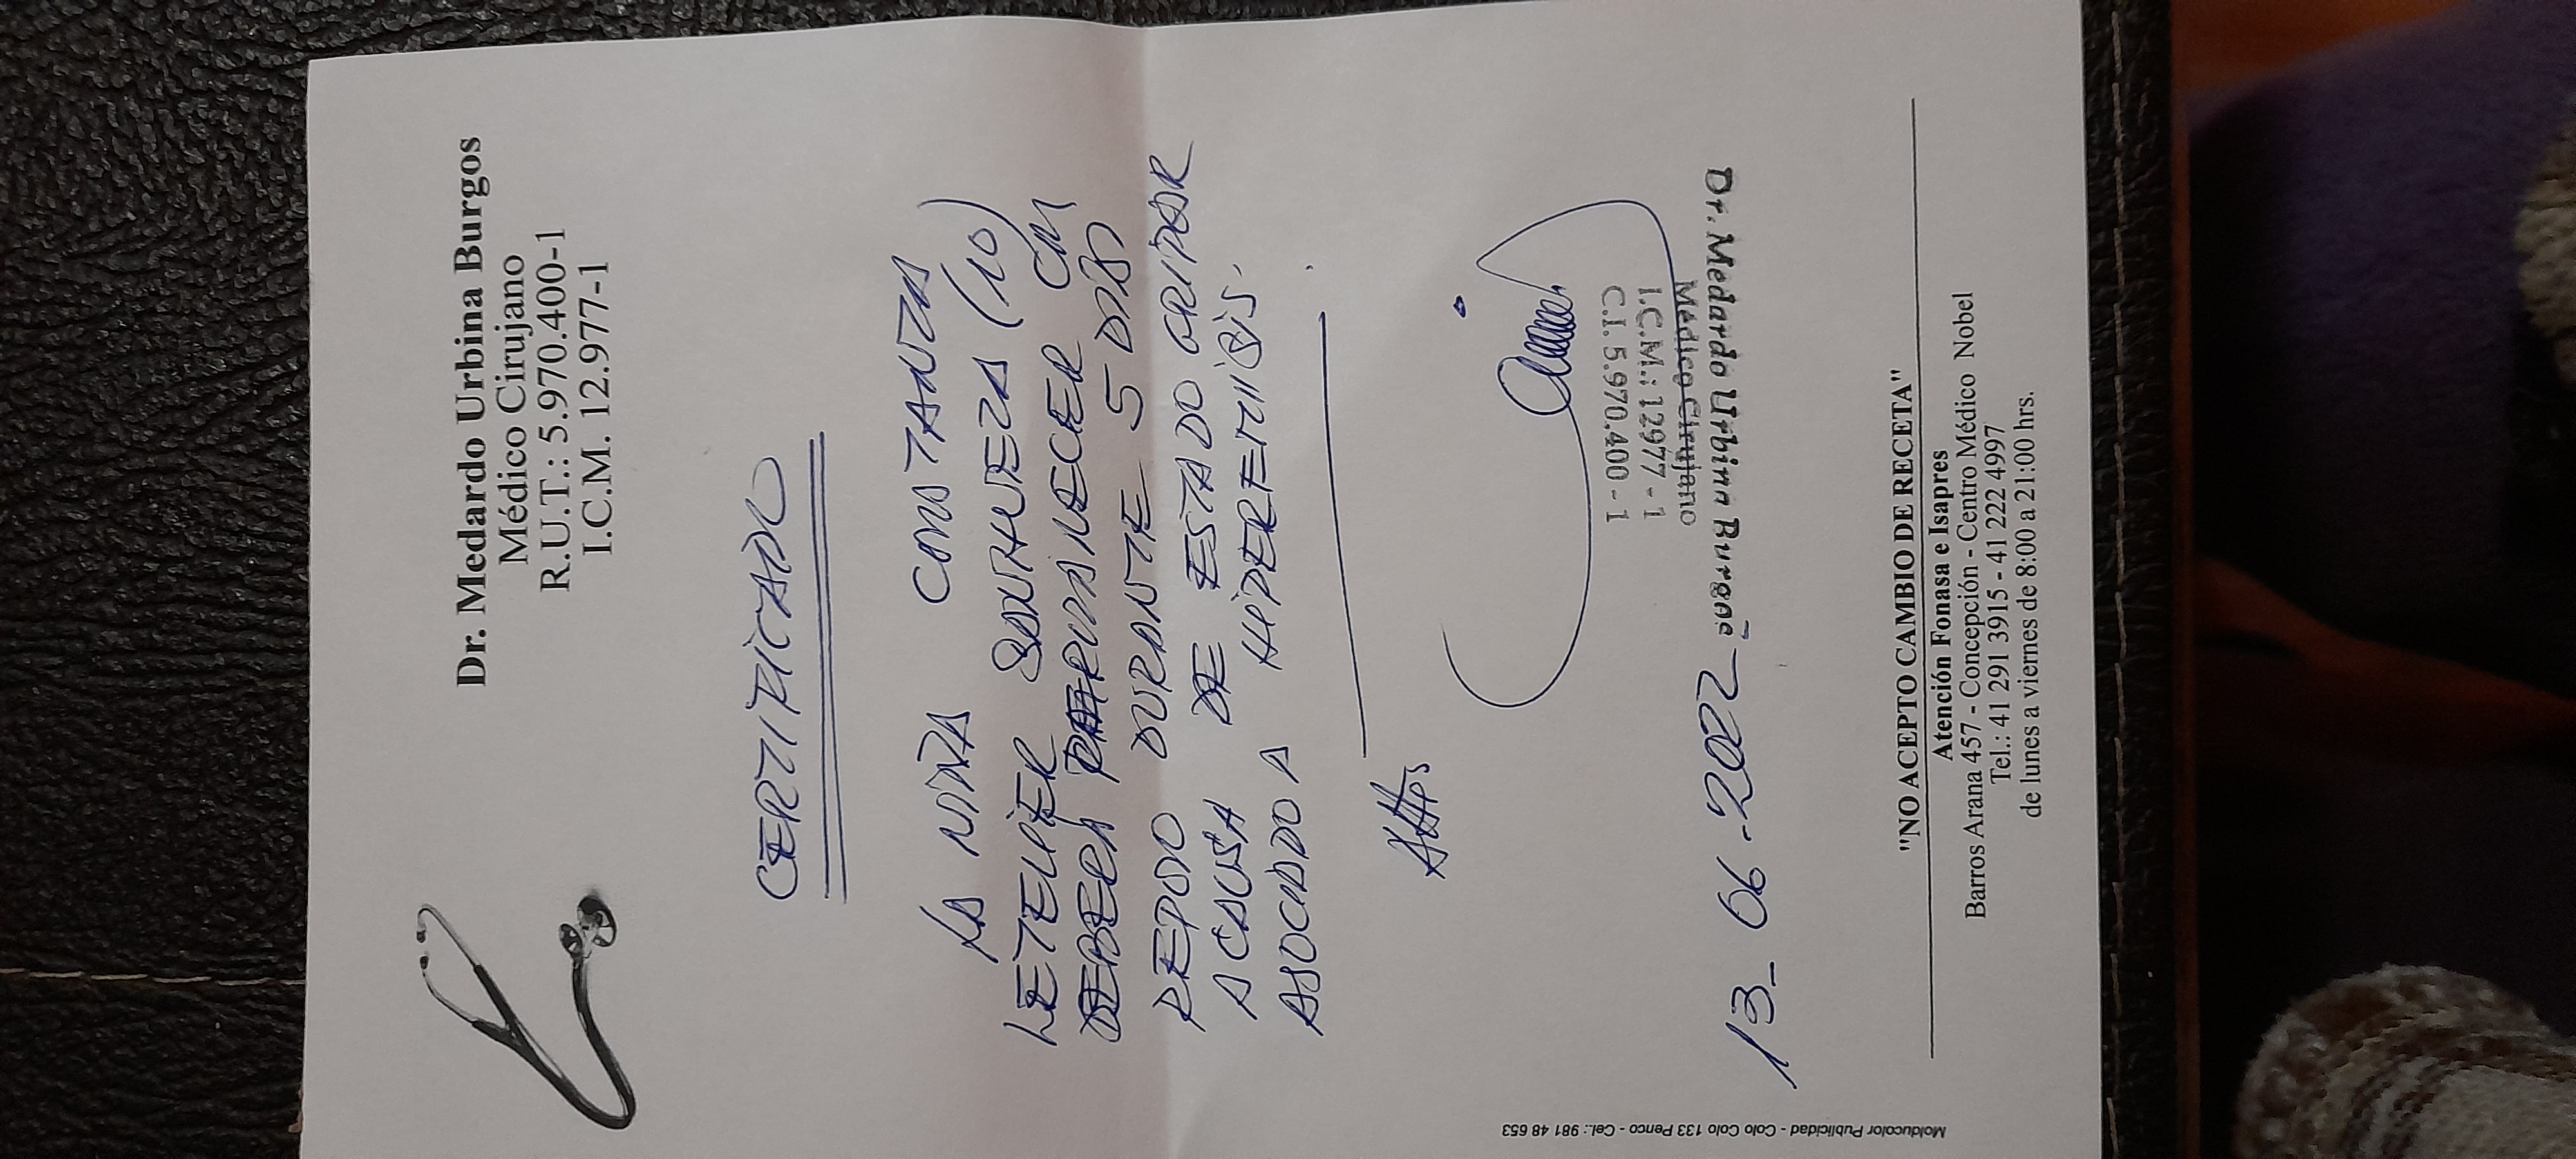 Dr. Medardo Urbina Burgos
Médico Cirujano
R.U.T.: 5.970.400-1
I.C.M. 12.977-1
CERTIFICADO
LA NIÑA CONSTANZA
LETELIER SANHUEZA (10)
DEBERA PERMANECER EN
REPOSO DURANTE 5 DÍAS
A CAUSA DE ESTADO GRIPAL
ASOCIADO A HIPERTERMIA.
C.I. 5.970.400-1
I.C.M.: 12977-1
Médico Cirujano
Dr. Medardo Urbina Burgos
13-06-2022
"NO ACEPTO CAMBIO DE RECETA"
Atención Fonasa e Isapres
Barros Arana 457 - Concepción - Centro Médico Nobel
Tel.: 41 291 3915 - 41 222 4997
de lunes a viernes de 8:00 a 21:00 hrs.
Molducolor Publicidad - Colo Colo 133 Penco - Cel.: 981 48 653